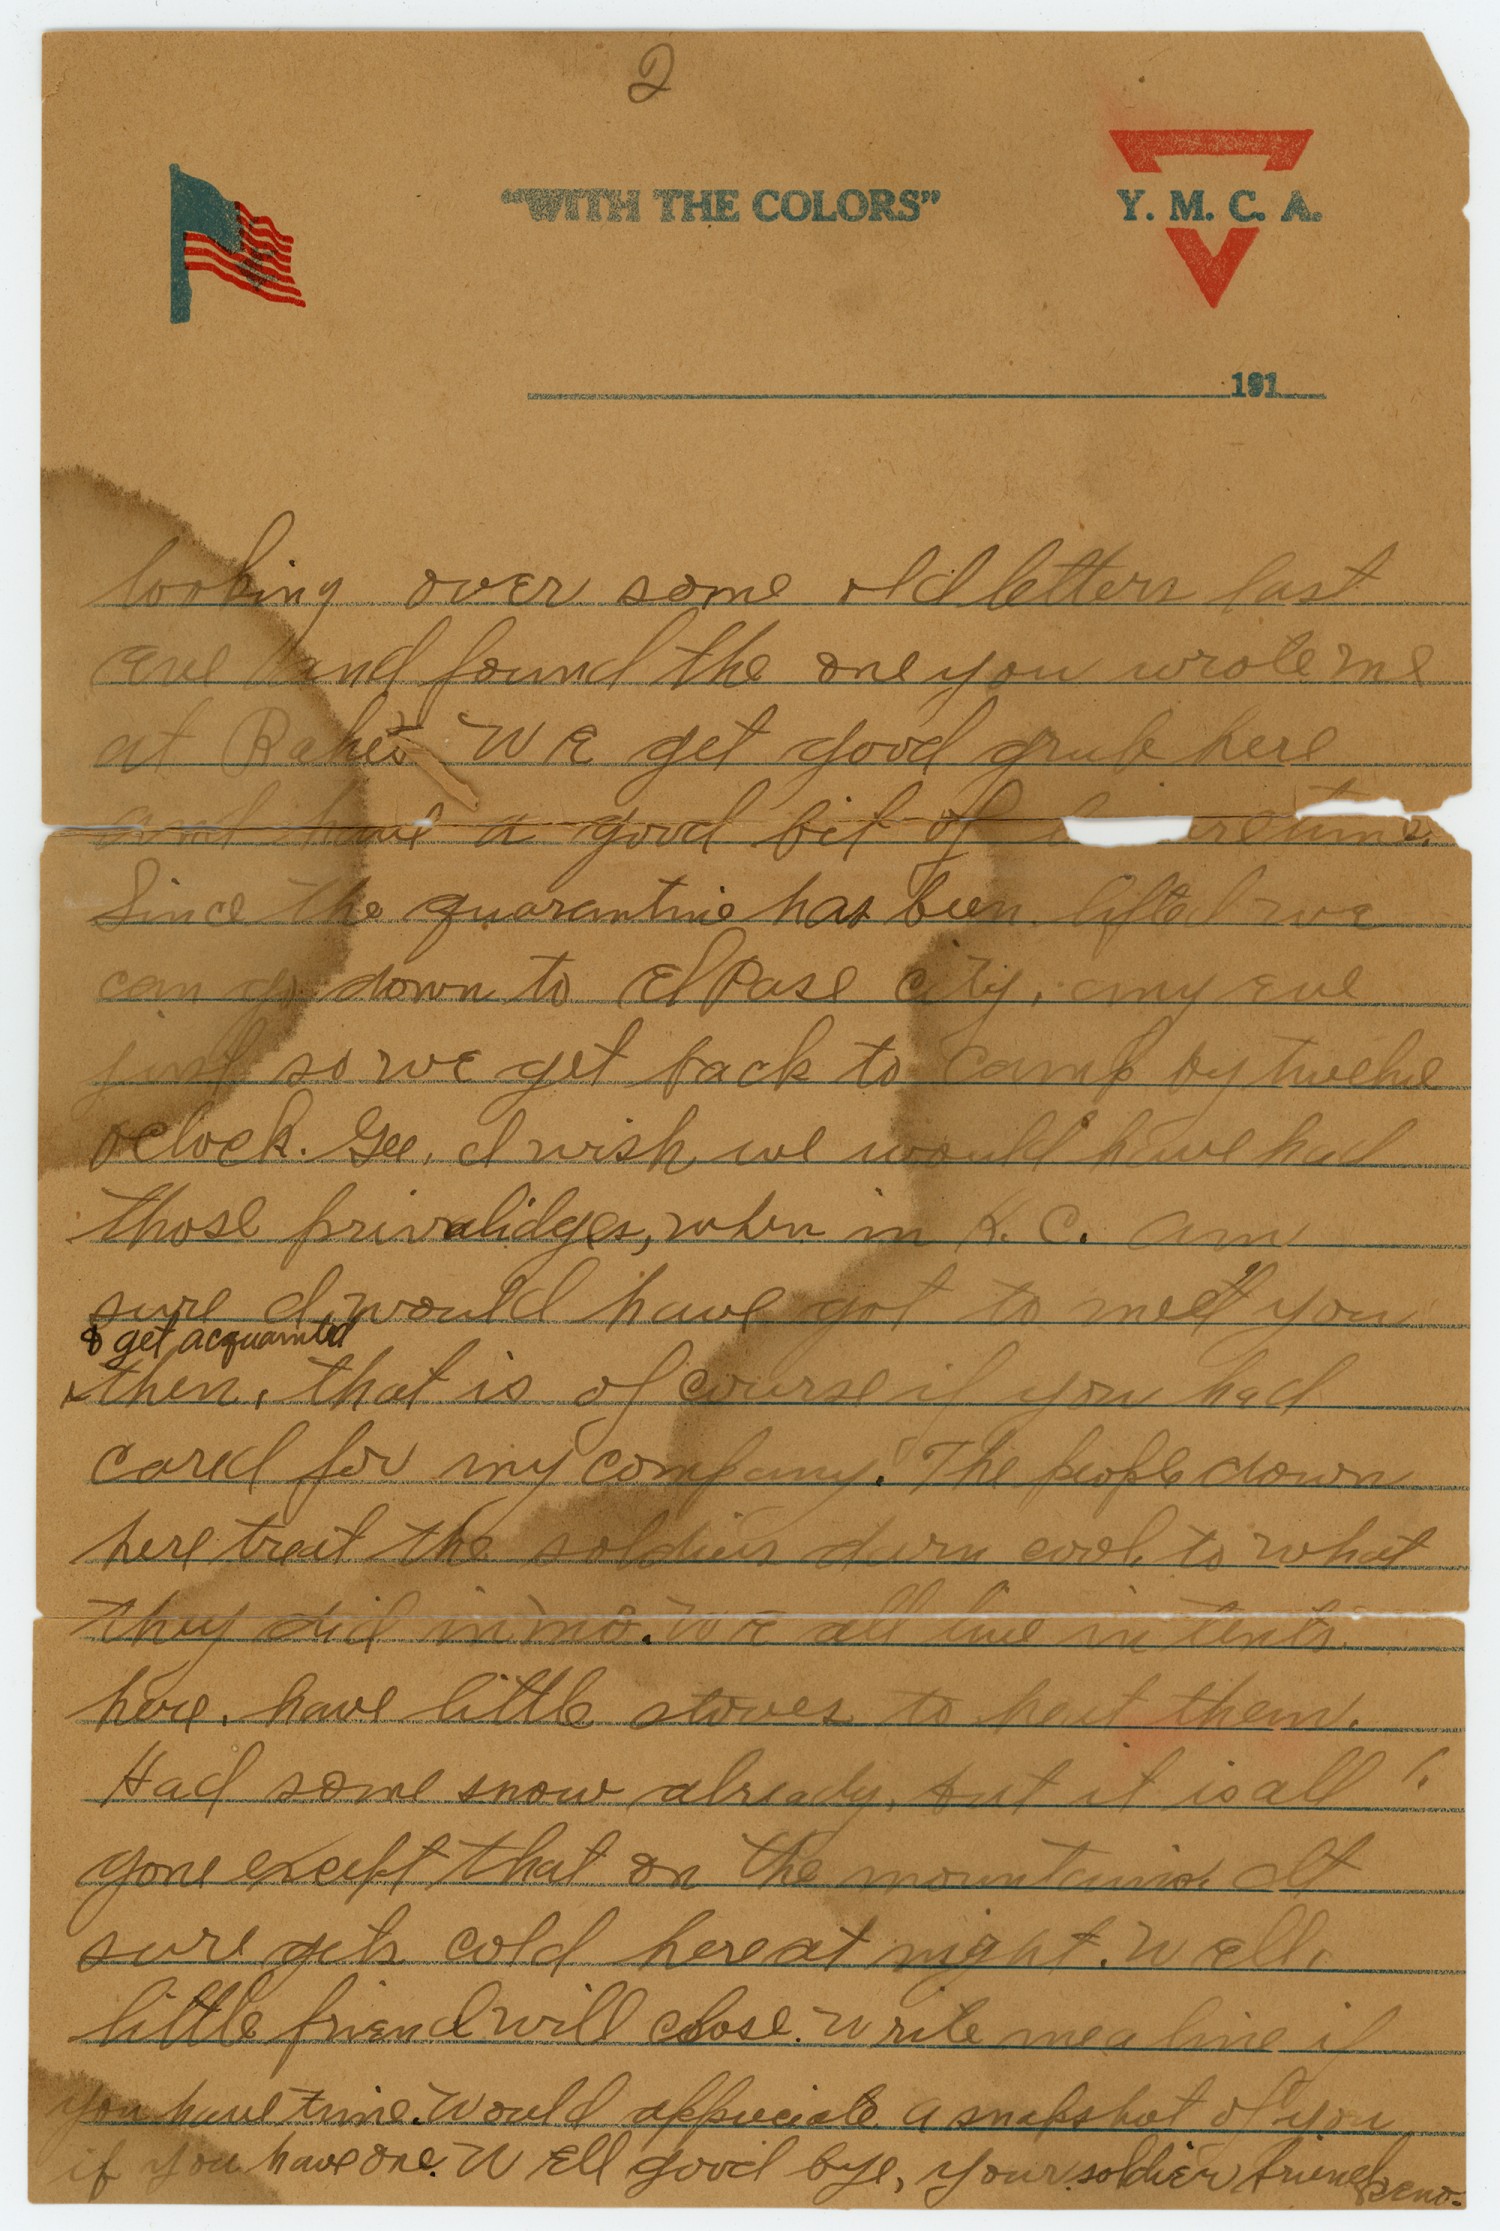 2
"WITH THE COLORS"
Y. M. C. A.
191
looking over some old letters last
eve and found the one you wrote me
at We get good grub here
and have a good bit of time.
Since the quarantine has been lifted we
can go down to El Pase city, any eve
just so we get back to camp by twelve
oclock. Gee, I wish we would have had
those privalidges, when in K. C. am
sure I would have got to meet you
& get acquainted
then, that is of course if you had
cared for my company. The people down
here treat the soldiers durn cool, to what
they did in mo. We all live in tents
here, have little stoves to heat them.
Had some snow already, but it is all
gone except that on the mountains. It
sure gets cold here at night. Well,
little friend will close. Write me a line if
you have time. Would appreciate a snapshot of you
if you have one. Well good bye, your soldier friend Reno.